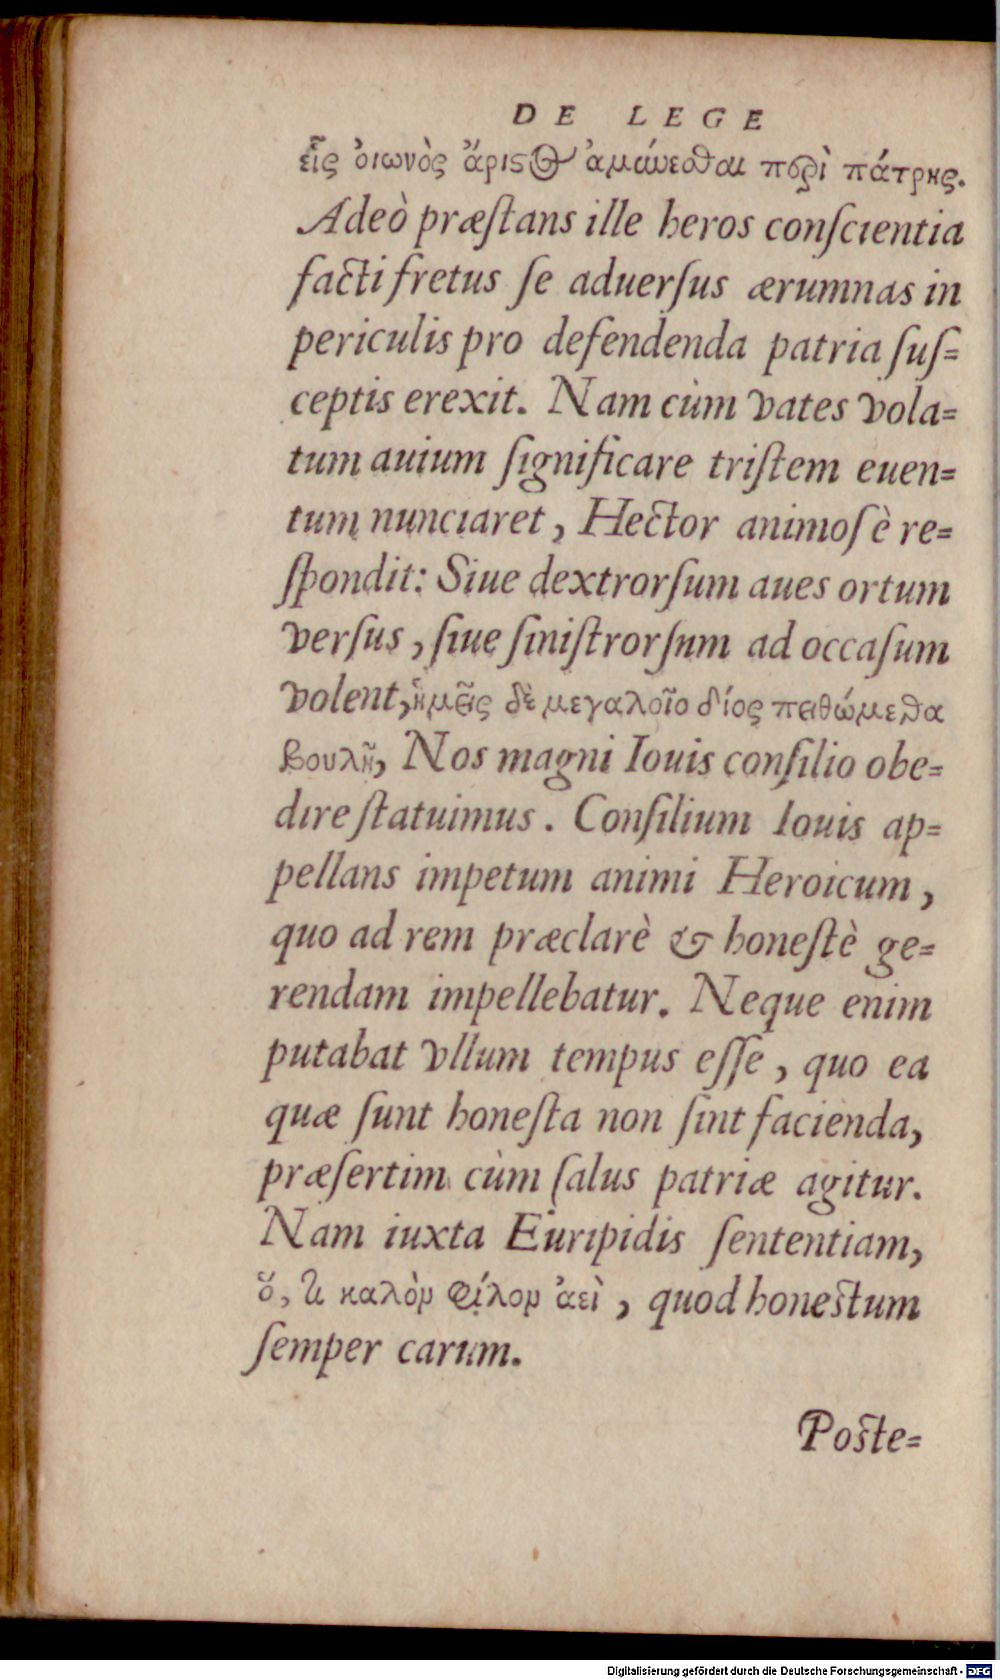 DE LEGE
εἷς ὀιωνὸς ἄριστος ἀμύνεσθαι περὶ πάτρης.
Adeò præſtans ille heros conſcientia
facti fretus ſe aduerſus ærumnas in
periculis pro defendenda patria ſuſ=
ceptis erexit. Nam cùm vates vola=
tum auium ſignificare triſtem euen=
tum nunciaret, Hector animoſè re=
ſpondit: Siue dextrorſum aues ortum
verſus, ſiue ſiniſtrorſnm ad occaſum
volent, ἡμεῖς δὲ μεγαλοῖο δίος πειθώμεθα
βουλῇ, Nos magni Iouis conſilio obe=
dire ſtatuimus. Conſilium Iouis ap=
pellans impetum animi Heroicum,
quo ad rem præclarè & honeſtè ge=
rendam impellebatur. Neque enim
putabat vllum tempus eſſe, quo ea
quæ ſunt honeſta non ſint facienda,
præſertim cùm ſalus patriæ agitur.
Nam iuxta Euripidis ſententiam,
ὅ, τι καλὸν φίλον ἀεὶ, quod honestum
ſemper carum.
Poste=
Digitalisierung gefördert durch die Deutsche Forschungsgemeinschaft - DFG